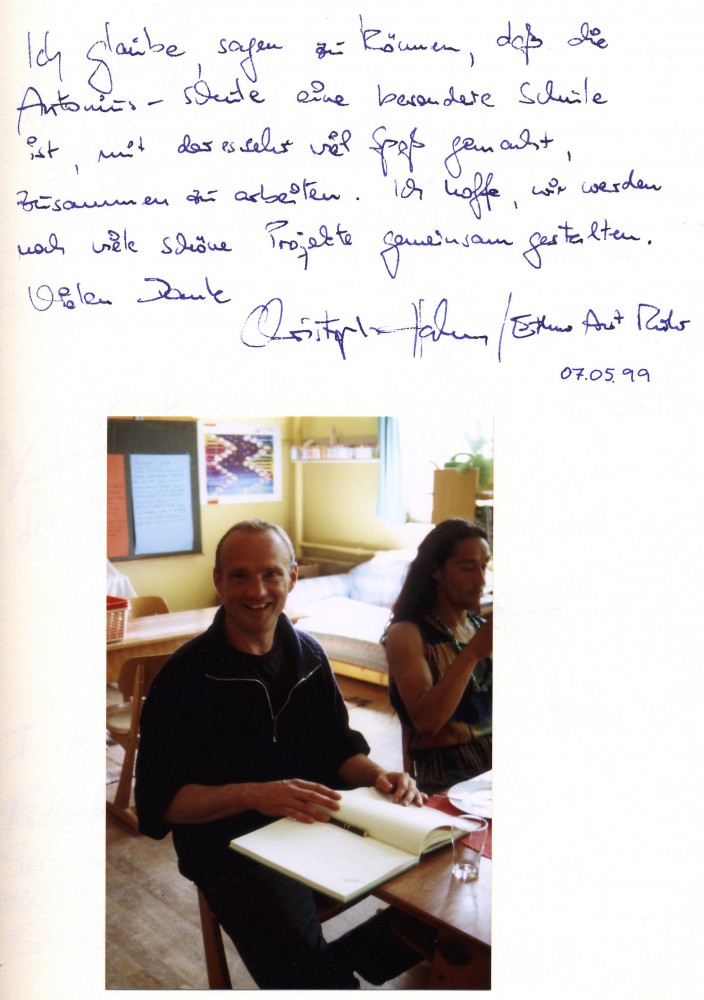 Ich glaube, sagen zu können, daß die
Antonius-Schule eine besondere Schule
ist, mit der es sehr viel Spaß gemacht,
zusammen zu arbeiten. Ich hoffe, wir werden
noch viele schöne Projekte gemeinsam gestalten.
Vielen Dank
Christoph Hahn /
07.05.99